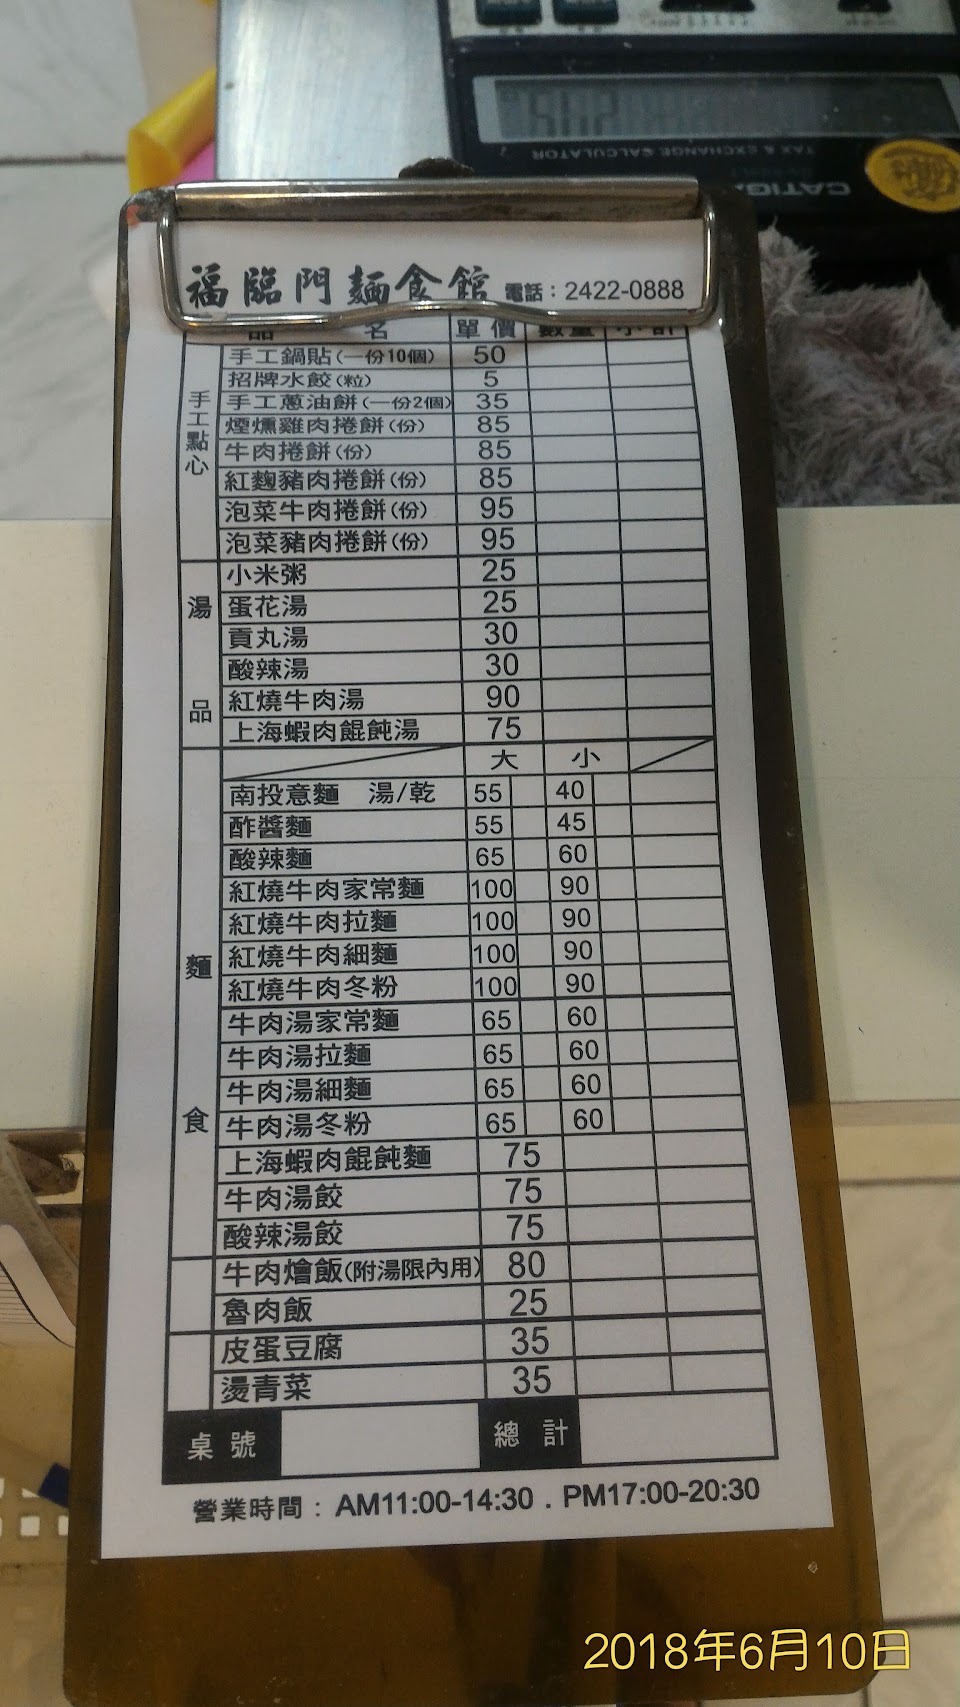 TAX & EXCHANGE CALCULATOR
CATIGA
福臨門麵食館 電話：2422-0888
品 名 單價 數量 小計
手工點心
手工鍋貼(一份10個) 50
招牌水餃(粒) 5
手工蔥油餅(一份2個) 35
煙燻雞肉捲餅(份) 85
牛肉捲餅(份) 85
紅麴豬肉捲餅(份) 85
泡菜牛肉捲餅(份) 95
泡菜豬肉捲餅(份) 95
湯品
小米粥 25
蛋花湯 25
貢丸湯 30
酸辣湯 30
紅燒牛肉湯 90
上海蝦肉餛飩湯 75
麵食
大 小
南投意麵 湯/乾 55 40
酢醬麵 55 45
酸辣麵 65 60
紅燒牛肉家常麵 100 90
紅燒牛肉拉麵 100 90
紅燒牛肉細麵 100 90
紅燒牛肉冬粉 100 90
牛肉湯家常麵 65 60
牛肉湯拉麵 65 60
牛肉湯細麵 65 60
牛肉湯冬粉 65 60
上海蝦肉餛飩麵 75
牛肉湯餃 75
酸辣湯餃 75
牛肉燴飯(附湯限內用) 80
魯肉飯 25
皮蛋豆腐 35
燙青菜 35
桌號 總計
營業時間：AM11:00-14:30．PM17:00-20:30
2018年6月10日